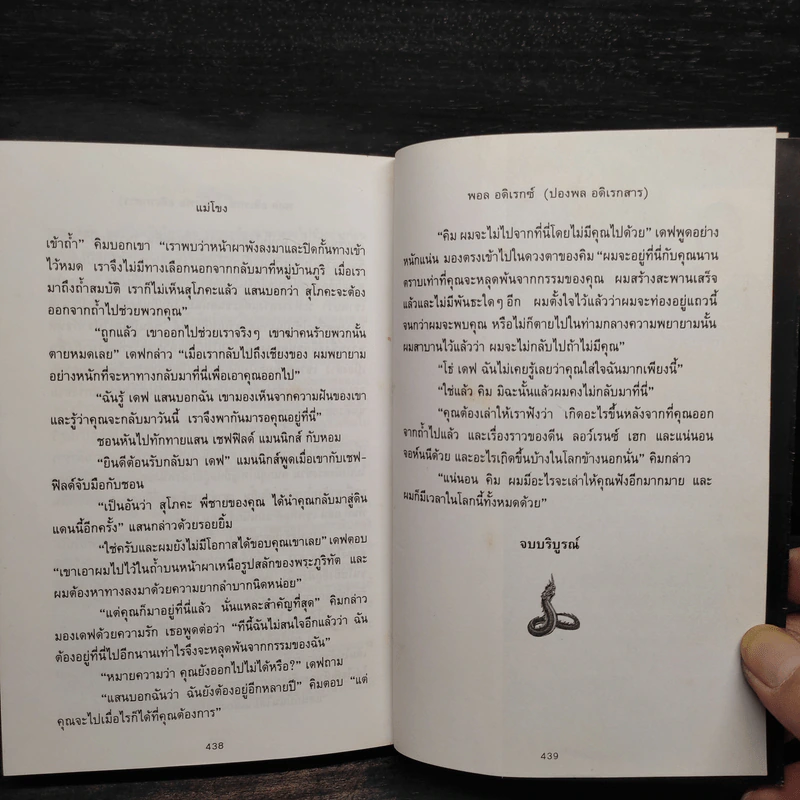 แม่โขง
เข้าถ้ำ” คิมบอกเขา “เราพบว่าหน้าผาพังลงมาและปิดกั้นทางเข้า
ไว้หมด เราจึงไม่มีทางเลือกนอกจากกลับมาที่หมู่บ้านภูริ เมื่อเรา
มาถึงถ้ำสมบัติ เราก็ไม่เห็นสุโภคะแล้ว แสนบอกว่า สุโภคะจะต้อง
ออกจากถ้ำไปช่วยพวกคุณ”
“ถูกแล้ว เขาออกไปช่วยเราจริงๆ เขาฆ่าคนร้ายพวกนั้น
ตายหมดเลย” เดฟกล่าว “เมื่อเรากลับไปถึงเชียงของ ผมพยายาม
อย่างหนักที่จะหาทางกลับมาที่นี่เพื่อเอาคุณออกไป”
“ฉันรู้ เดฟ แสนบอกฉัน เขามองเห็นจากความฝันของเขา
และรู้ว่าคุณจะกลับมาวันนี้ เราจึงพากันมารอคุณอยู่ที่นี่”
ชอนหันไปทักทายแสน เชฟฟิลด์ แมนนิกส์ กับหอม
“ยินดีต้อนรับกลับมา เดฟ” แมนนิกส์พูดเมื่อเขากับเชฟ-
ฟิลด์จับมือกับชอน
“เป็นอันว่า สุโภคะ พี่ชายของคุณ ได้นำคุณกลับมาสู่ดิน
แดนนี้อีกครั้ง” แสนกล่าวด้วยรอยยิ้ม
“ใช่ครับและผมยังไม่มีโอกาสได้ขอบคุณเขาเลย” เดฟตอบ
“เขาเอาผมไปไว้ในถ้ำบนหน้าผาเหนือรูปสลักของพระภูริทัต และ
ผมต้องหาทางลงมาด้วยความยากลำบากนิดหน่อย”
“แต่คุณก็มาอยู่ที่นี่แล้ว นั่นแหละสำคัญที่สุด” คิมกล่าว
มองเดฟด้วยความรัก เธอพูดต่อว่า “ทีนี้ฉันไม่สนใจอีกแล้วว่า ฉัน
ต้องอยู่ที่นี่ไปอีกนานเท่าไรจึงจะหลุดพ้นจากกรรมของฉัน”
“หมายความว่า คุณยังออกไปไม่ได้หรือ?” เดฟถาม
“แสนบอกฉันว่า ฉันยังต้องอยู่อีกหลายปี” คิมตอบ “แต่
คุณจะไปเมื่อไรก็ได้ที่คุณต้องการ”
438
พอล อดิเรกซ์ (ปองพล อดิเรกสาร)
“คิม ผมจะไม่ไปจากที่นี่โดยไม่มีคุณไปด้วย” เดฟพูดอย่าง
หนักแน่น มองตรงเข้าไปในดวงตาของคิม “ผมจะอยู่ที่นี่กับคุณนาน
ตราบเท่าที่คุณจะหลุดพ้นจากกรรมของคุณ ผมสร้างสะพานเสร็จ
แล้วและไม่มีพันธะใดๆ อีก ผมตั้งใจไว้แล้วว่าผมจะท่องอยู่แถวนี้
จนกว่าผมจะพบคุณ หรือไม่ก็ตายไปในท่ามกลางความพยายามนั้น
ผมสาบานไว้แล้วว่า ผมจะไม่กลับไปถ้าไม่มีคุณ”
“โธ่ เดฟ ฉันไม่เคยรู้เลยว่าคุณใส่ใจฉันมากเพียงนี้”
“ใช่แล้ว คิม มิฉะนั้นแล้วผมคงไม่กลับมาที่นี่”
“คุณต้องเล่าให้เราฟังว่า เกิดอะไรขึ้นหลังจากที่คุณออก
จากถ้ำไปแล้ว และเรื่องราวของดีน ลอว์เรนซ์ เฮก และแน่นอน
จอห์นนี่ด้วย และอะไรเกิดขึ้นบ้างในโลกข้างนอกนั้น” คิมกล่าว
“แน่นอน คิม ผมมีอะไรจะเล่าให้คุณฟังอีกมากมาย และ
ผมก็มีเวลาในโลกนี้ทั้งหมดด้วย”
จบบริบูรณ์
439